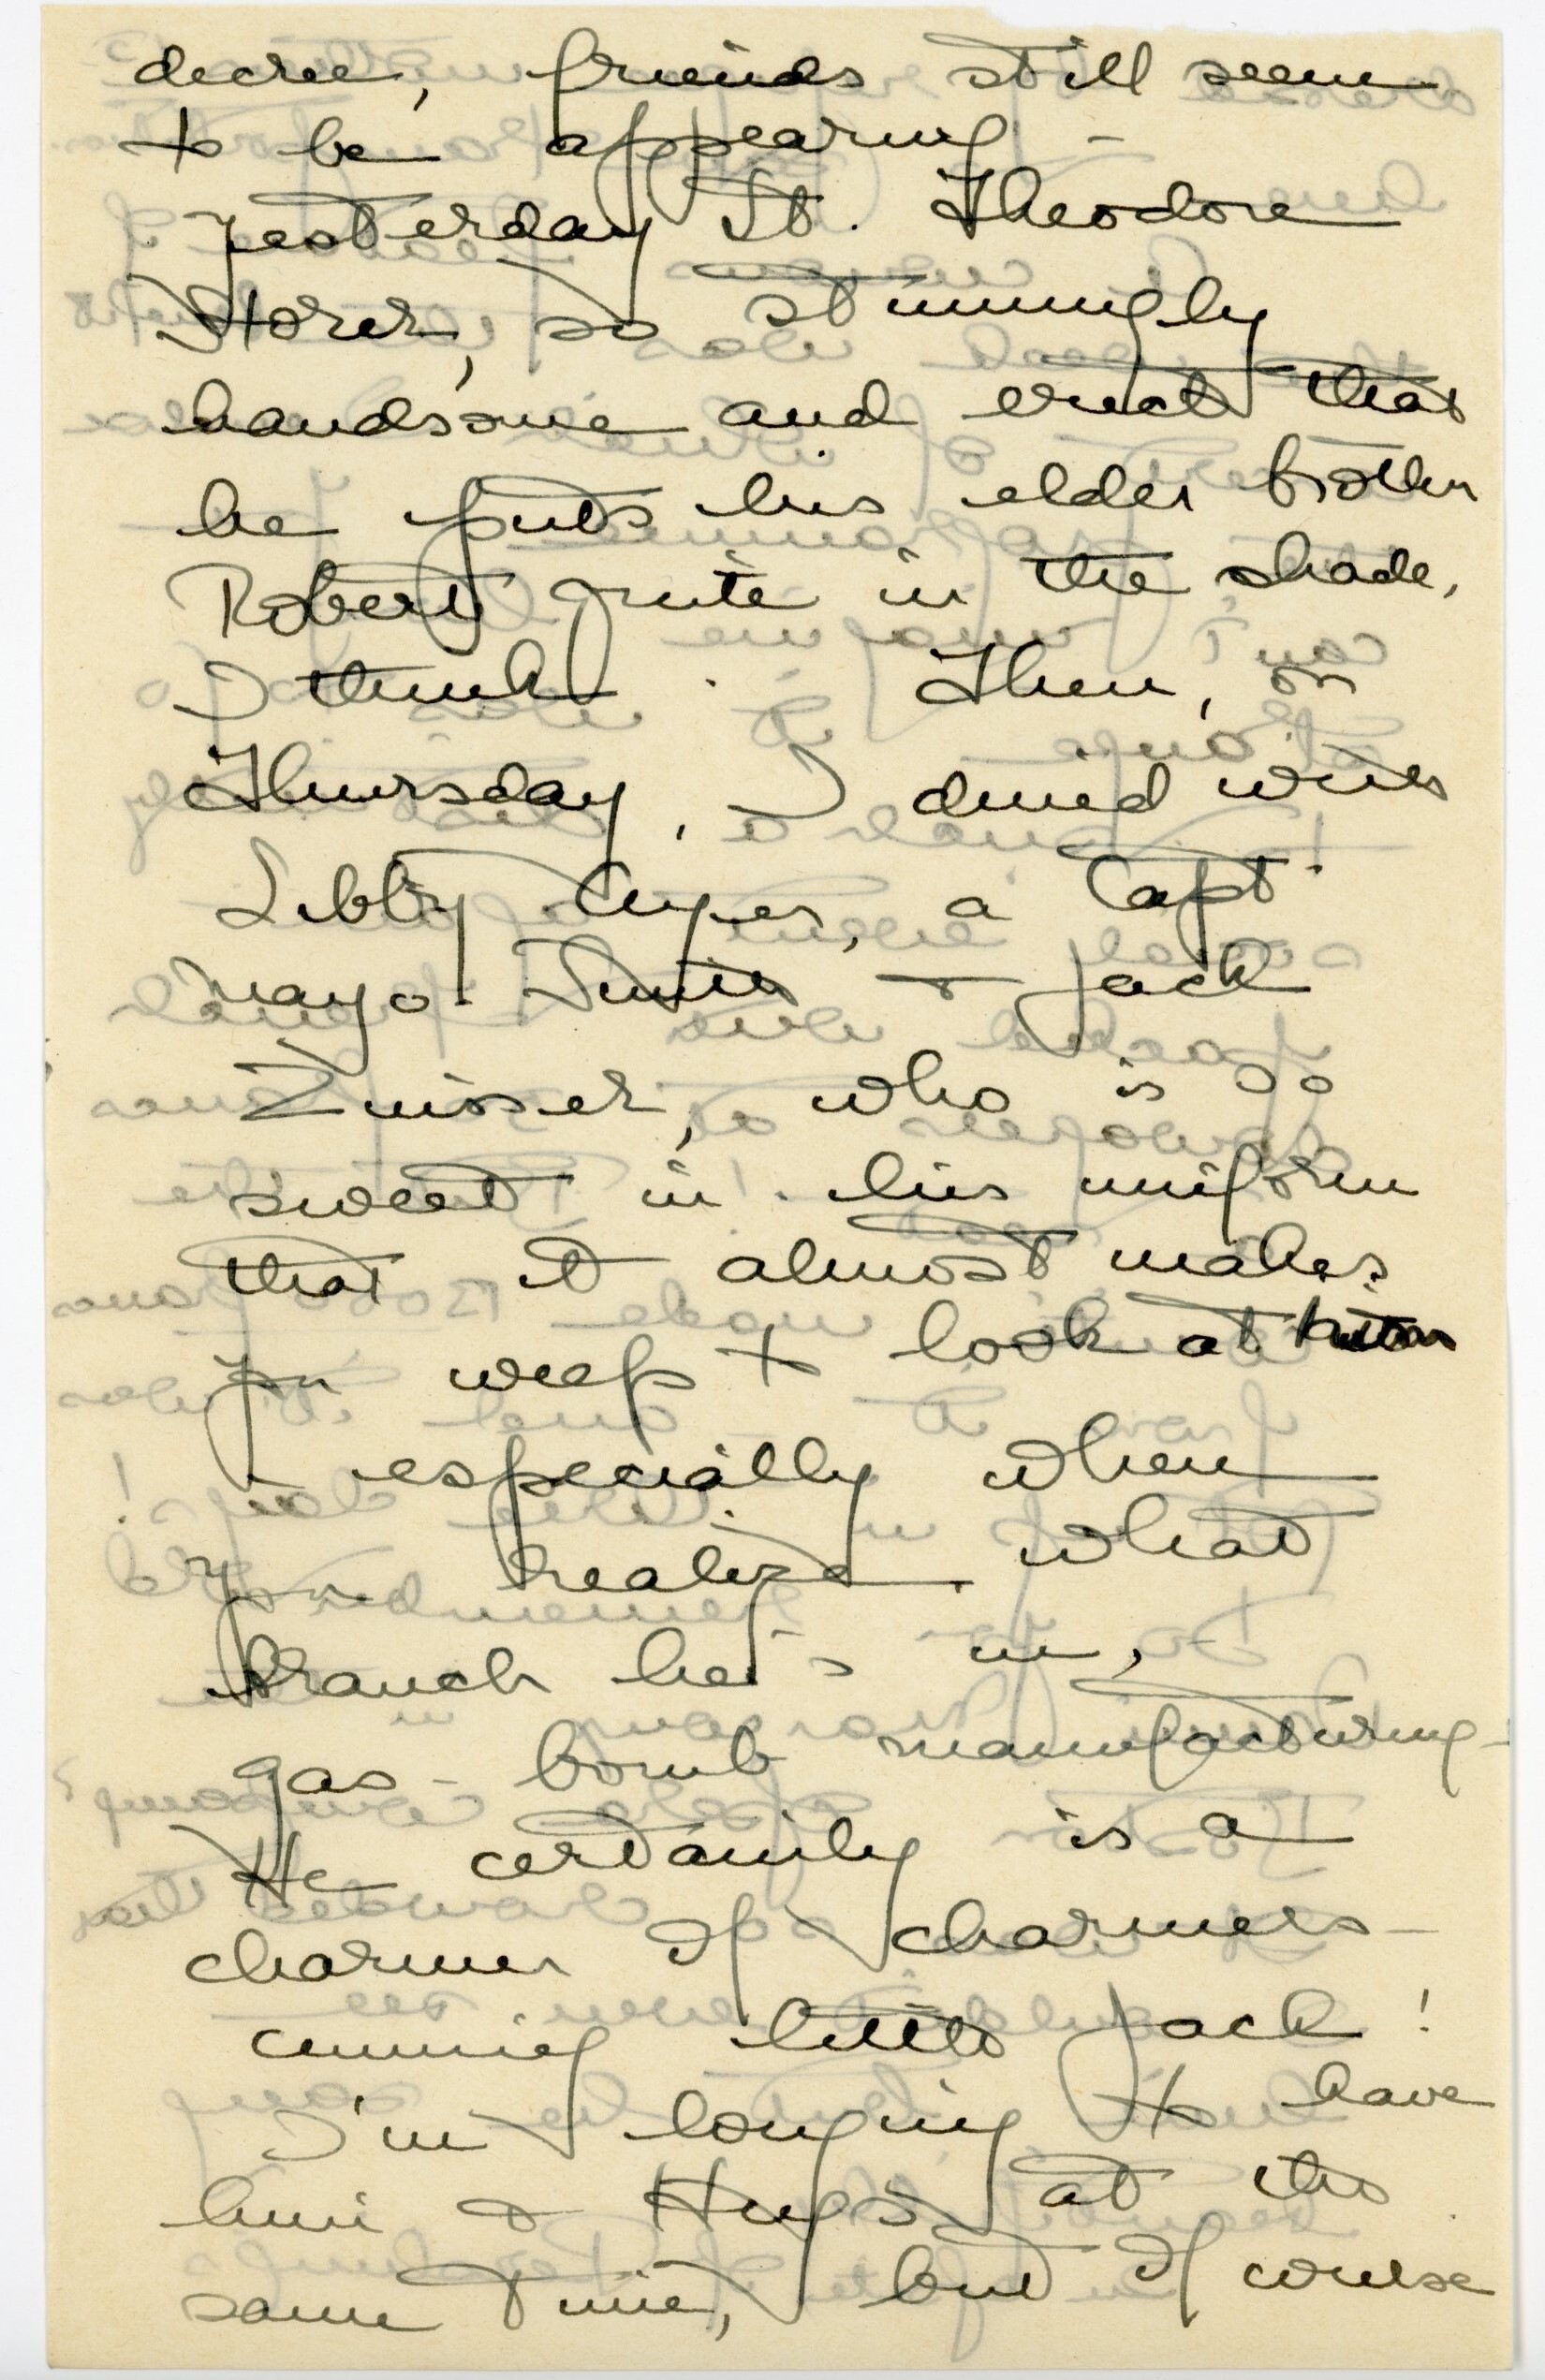 decree, friends still seem
to be appearing –
yesterday Lt. Theodore
Storer, so stunningly
handsome and erect that
he puts his elder brother
Robert quite in the shade,
I think. Then, on
Thursday, I dined with
Libby, a Capt.
Mayo-Smith & Jack
Zinsser, who is so
sweet in his uniform
that it almost makes
you weep to look at
– especially when
you realize what
branch he's in,
gas-bomb manufacturing –
He certainly is a
charmer of charmers –
cunning little Jack!
I'm longing to have
him & Hugs at the
same time, but of course